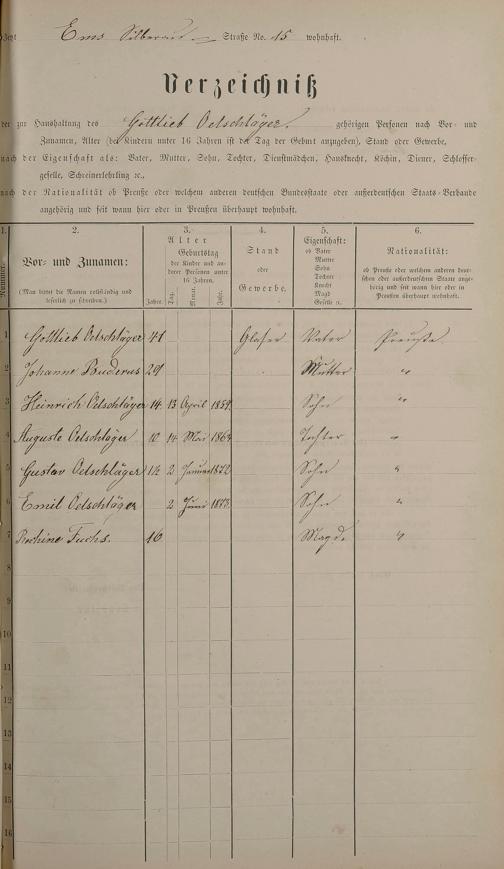 Ems Silberau — Straße No. 15 wohnhaft.
Verzeichniß
der zur Haushaltung des Gottlieb Oelschläger. gehörigen Personen nach Vor- und
Zunamen, Alter (bei Kindern unter 16 Jahren ist der Tag der Geburt anzugeben), Stand oder Gewerbe,
nach der Eigenschaft als: Vater, Mutter, Sohn, Tochter, Dienstmädchen, Hausknecht, Köchin, Diener, Schlosser-
geselle, Schreinerlehrling ꝛc.,
nach der Nationalität ob Preuße oder welchem anderen deutschen Bundesstaate oder außerdeutschen Staats-Verbande
angehörig und seit wann hier oder in Preußen überhaupt wohnhaft.
1. 2. 3. 4. 5. 6.
Nummer.
Vor- und Zunamen:
(Man bittet die Namen vollständig und
leserlich zu schreiben.)
Alter
Geburtstag
der Kinder und an-
derer Personen unter
16 Jahren.
Jahre. Tag. Monat. Jahr.
Stand
oder
Gewerbe.
Eigenschaft:
ob Vater
Mutter
Sohn
Tochter
Knecht
Magd
Geselle ꝛc.
Nationalität:
ob Preuße oder welchem anderen deut-
schen oder außerdeutschen Staate ange-
hörig und seit wann hier oder in
Preußen überhaupt wohnhaft.
1 Gottlieb Oelschläger 41 Glaser Vater Preuße.
2 Johanne Buderus Mutter "
3 Heinrich Oelschläger 14 13 April 1859 Sohn "
4 Auguste Oelschläger 10 14 Mai Tochter "
5 Gustav Oelschläger 1½ 2 Januar 1872 Sohn "
6 Emil Oelschläger 2 Juni 1873 Sohn "
7 Fuchs. 16 Magd. "
8
9
10
11
12
13
14
15
16